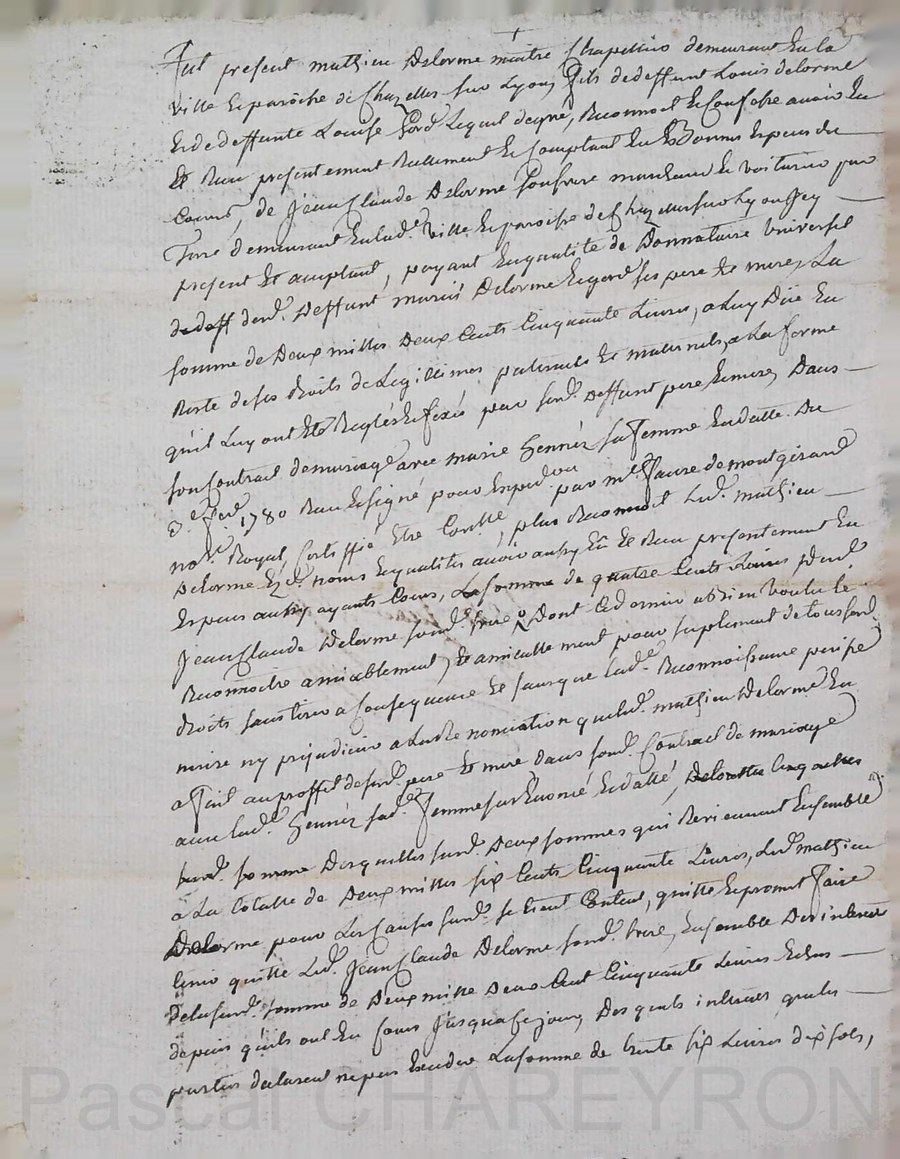 Fut présent mathieu Delorme maitre Chapellier demeurant En la
ville Et paroisse de Chazelles sur Lyon, fils de deffunt Louis delorme
Et de deffunte Louise Gord Lequel de gré, Reconnoit Et Confesse avoir Eu
Et Receu présentement Réellement Et Comptant En Bonnes Especes du
Cours, de Jean Claude Delorme son frere marchand Et voiturier par
Terre demeurant En lad.e ville Et paroisse de Chazelles sur Lyon Icy
présent Et acceptant, payant En qualité de Donnataire Universel
desd. deffunt mariés Delorme Et gord ses pere Et mere, La
somme de Deux milles Deux Cents Cinquante Livres, a Luy Düe En
Reste de ses droits de Légitimes paternels Et maternels, a La forme
qu'il Luy ont Eté Reglés Et fixés par sesd. deffunt pere Et mere, Dans
son Contrat de mariage avec marie sa femme En datte du
3e 1780 Receu Et signé pour Expedition par m.e faure de montgirand
no.re Royal, Certiffié Etre Controllé, plus Reconnoit Led. mathieu
Delorme Ez d. noms Et qualités avoir aussy Eu Et Receu présentement En
Especes aussy ayants Cours, La somme de quatre Cents Livres dud.
Jean Claude Delorme son d. frere, Dont Ce dernier a Bien voulu Le
Reconnoitre amiablement, Et amicallement pour suplement de tous sesd.
droits sans tirer a Consequence Et sans que lad.e Reconnoissance puisse
nuire ny préjudicier a La Renonciation que led. mathieu Delorme En
a fait au proffit de sesd. pere Et mere dans sond. Contract de mariage
avec lad. sad. femme sus Enoncé Et datté,
somme Desquelles susd. Deux sommes qui Reviennent Ensemble
a La totalle de Deux milles six Cents Cinquante Livres, Led. mathieu
Delorme pour Les Causes susd. se tient Content, quitte Et promet faire
tenir quitte Led. Jean Claude Delorme sond. frere, Ensemble Des interets
de la susd. somme de Deux mille Deux Cent Cinquante Livres Echus
depuis qu'ils ont Eu Cours Jusqu'a Ce jour, Des quels interets quels
parties declarent ne pas Exceder La somme de trente six Livres dix sols,
Pascal CHAREYRON